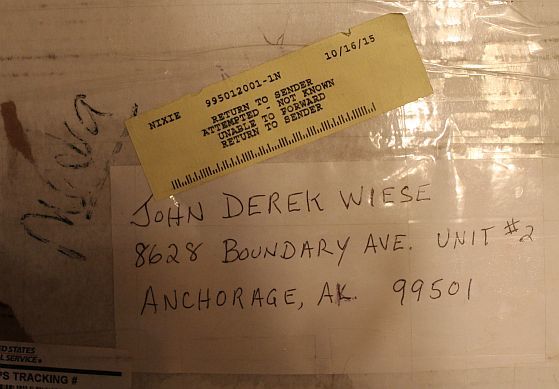 NIXIE 995012001-1N 10/16/15
RETURN TO SENDER
ATTEMPTED - NOT KNOWN
UNABLE TO FORWARD
RETURN TO SENDER
JOHN DEREK WIESE
8628 BOUNDARY AVE. UNIT #2
ANCHORAGE, AK. 99501
D STATES
L SERVICE®
PS TRACKING #